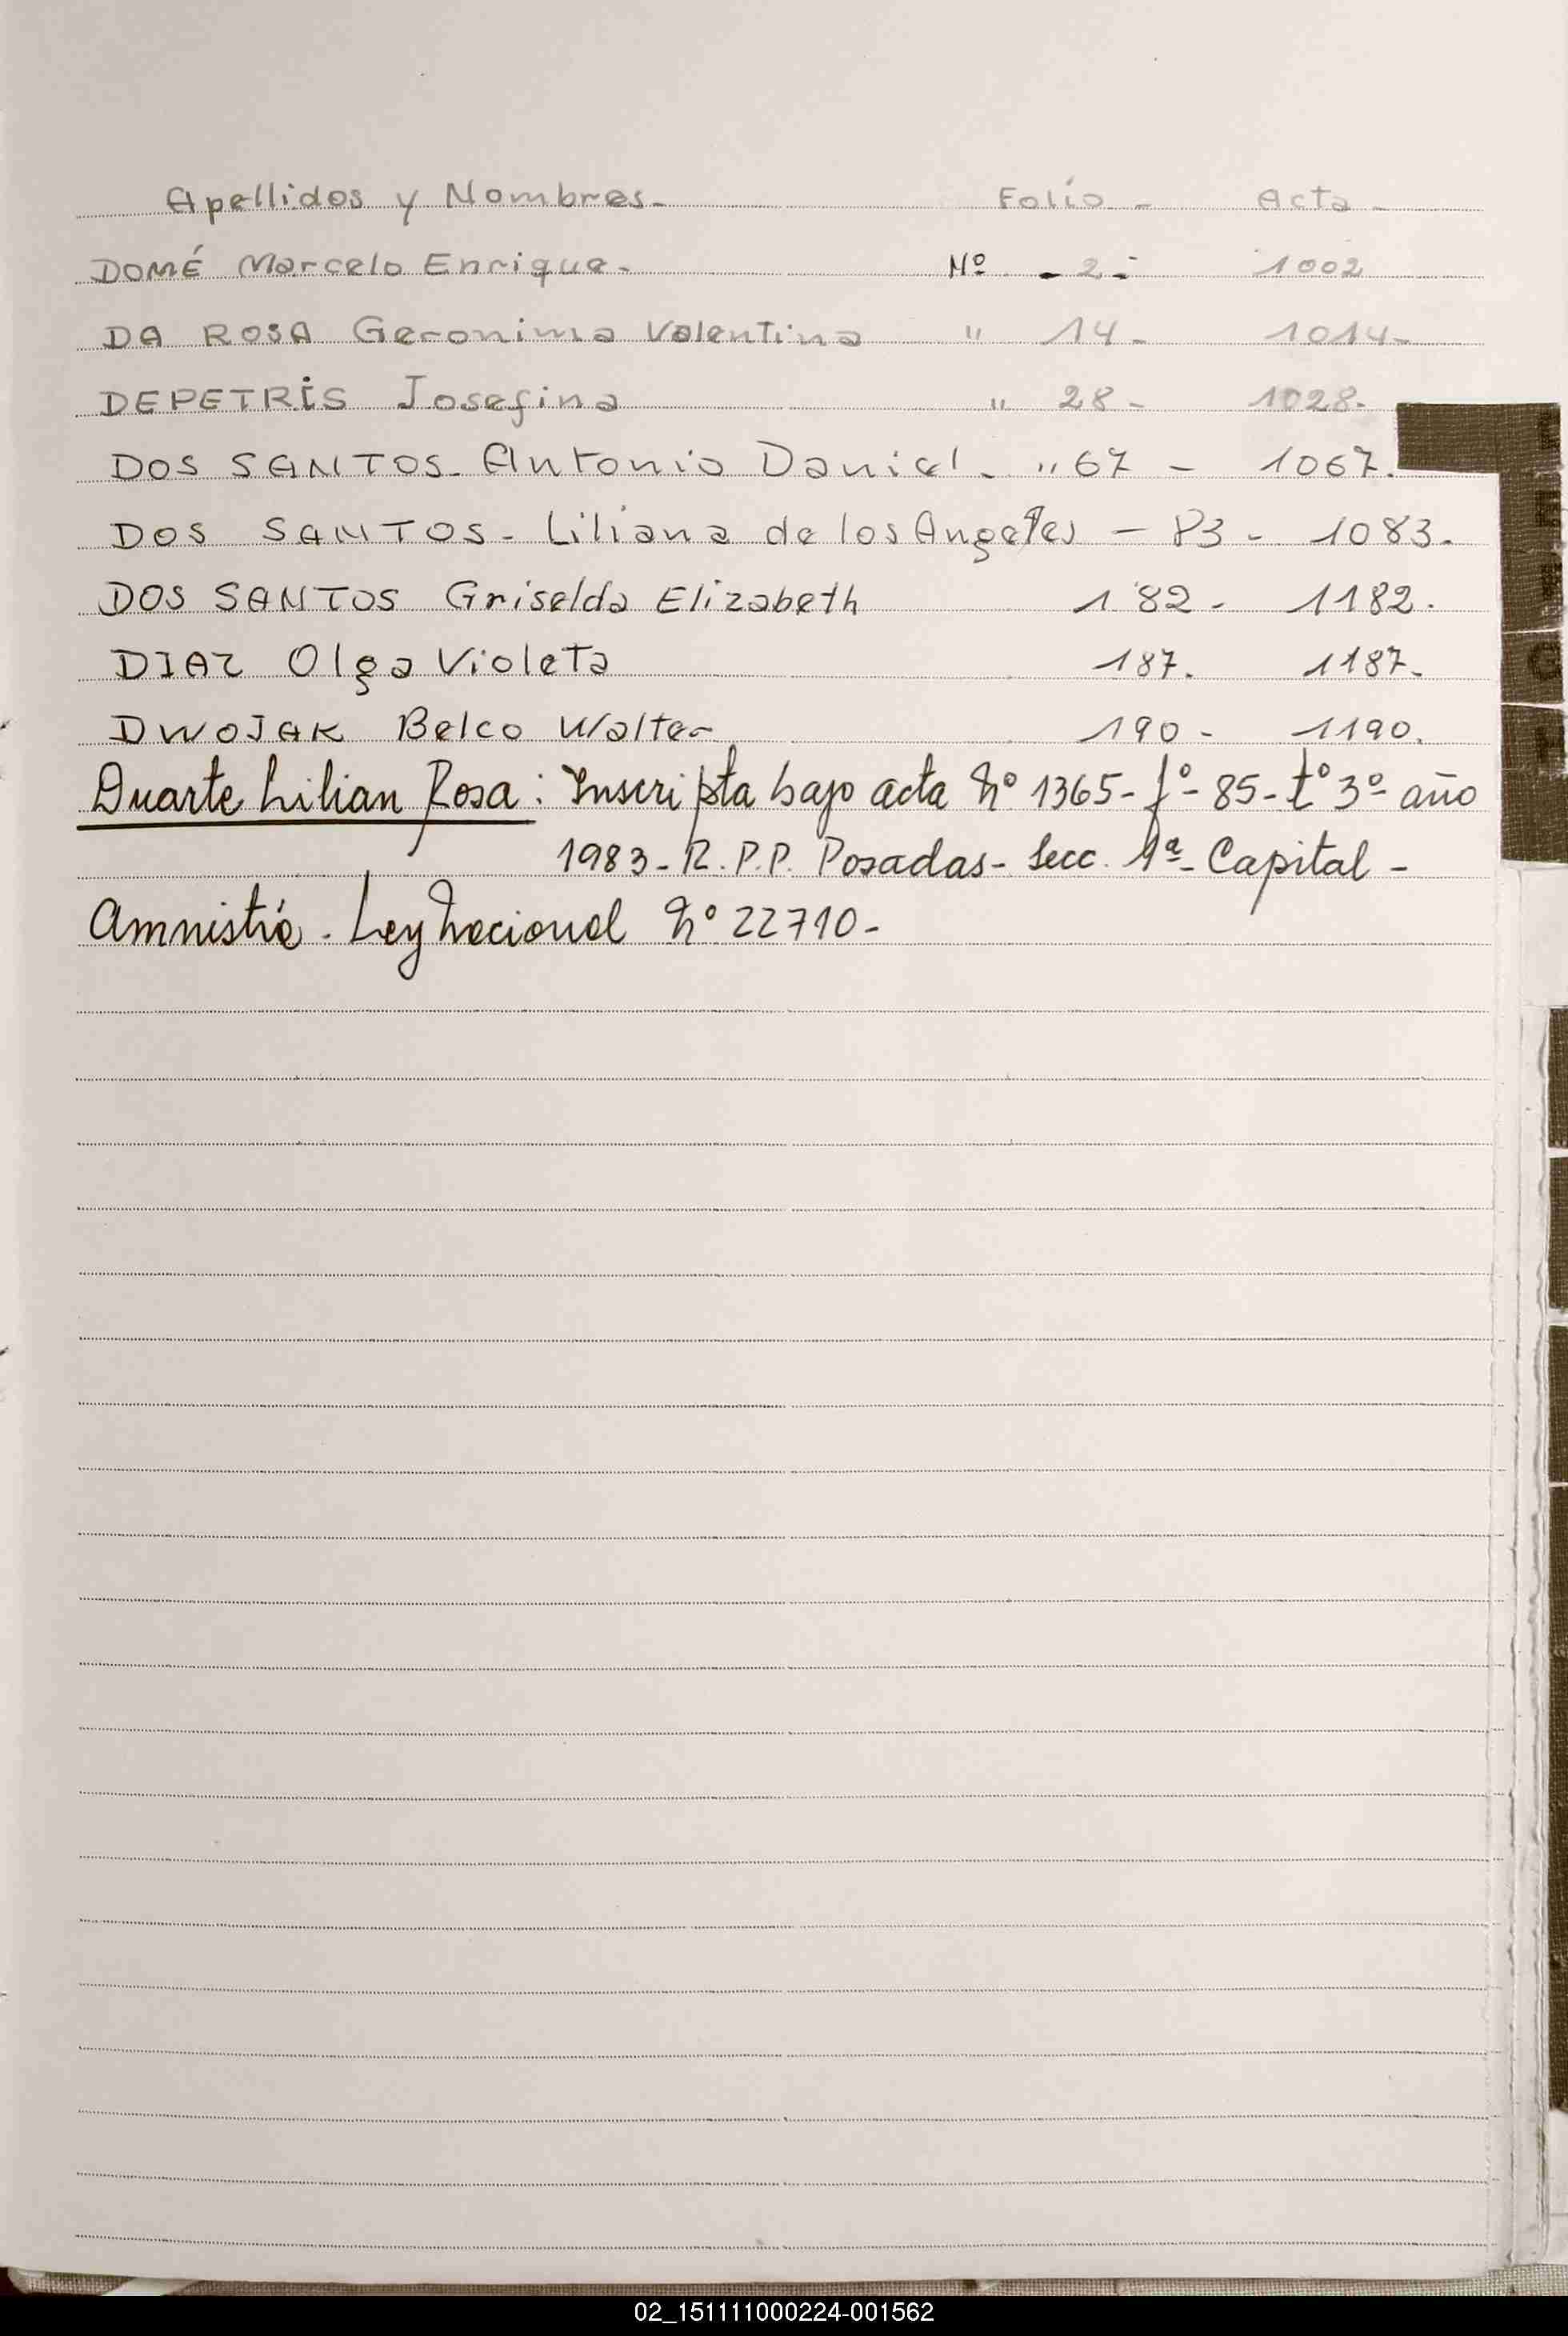 Apellidos y Nombres- Folio - Acta -
DOMÉ Marcelo Enrique- Nº - 2 - 1002
DA ROSA Geronima Valentina " 14 - 1014-
DEPETRIS Josefina " 28 - 1028-
DOS SANTOS- Antonio Daniel - " 67 - 1067.
DOS SANTOS- Liliana de los Angeles - 83 - 1083.
DOS SANTOS Griselda Elizabeth 182 - 1182.
DIAZ Olga Violeta 187. 1187-
DWOJAK Belco Walter 190 - 1190.
Duarte Lilian Rosa: Inscripta bajo acta Nº 1365- fº- 85- tº 3º año
1983- R.P.P. Posadas- Secc. 1ª- Capital -
Amnistía. Ley Nacional Nº 22710-
02_151111000224-001562